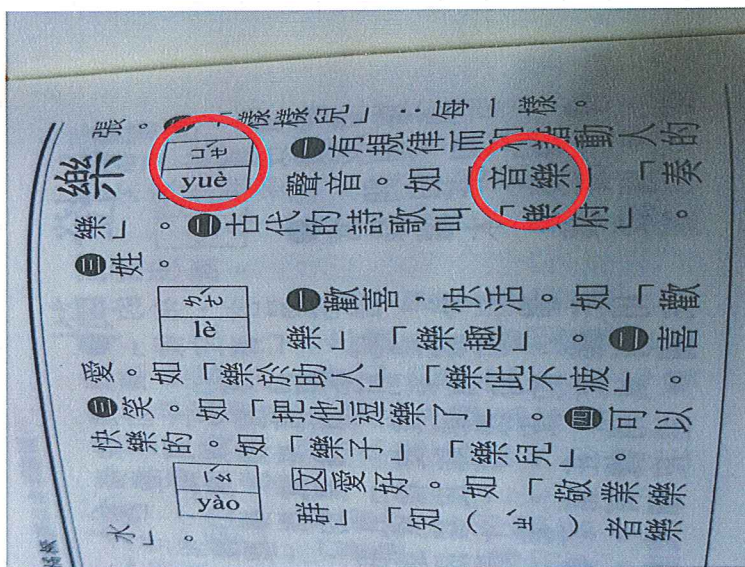 張。「樣樣兒」：每一樣。
樂 ㄩㄝˋ yuè ㊀有規律而和諧動人的
聲音。如「音樂」「奏
樂」。㊁古代的詩歌叫「樂府」。
㊂姓。
ㄌㄜˋ lè ㊀歡喜，快活。如「歡
樂」「樂趣」。㊁喜
愛。如「樂於助人」「樂此不疲」。
㊂笑。如「把他逗樂了」。㊃可以
快樂的。如「樂子」「樂兒」。
ㄧㄠˋ yào 文愛好。如「敬業樂
群」「知（ㄓˋ）者樂
水」。